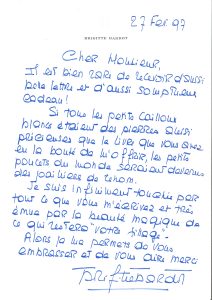 27 Fev 97
BRIGITTE BARDOT
Cher Monsieur,
Il est bien rare de recevoir d'aussi
belle lettre et d'aussi somptueux
cadeau!
Si tous les petits cailloux
blancs étaient des pierres aussi
précieuses que le livre que vous avez
eu la bonté de m'offrir, les petits
poucets du monde seraient devenus
des joailliers de renom.
Je suis infiniment touchée par
tout ce que vous m'écrivez et très
émue par la beauté magique de
ce qui restera "votre
Alors je me permets de vous
embrasser et de vous dire merci
Brigitte Bardot